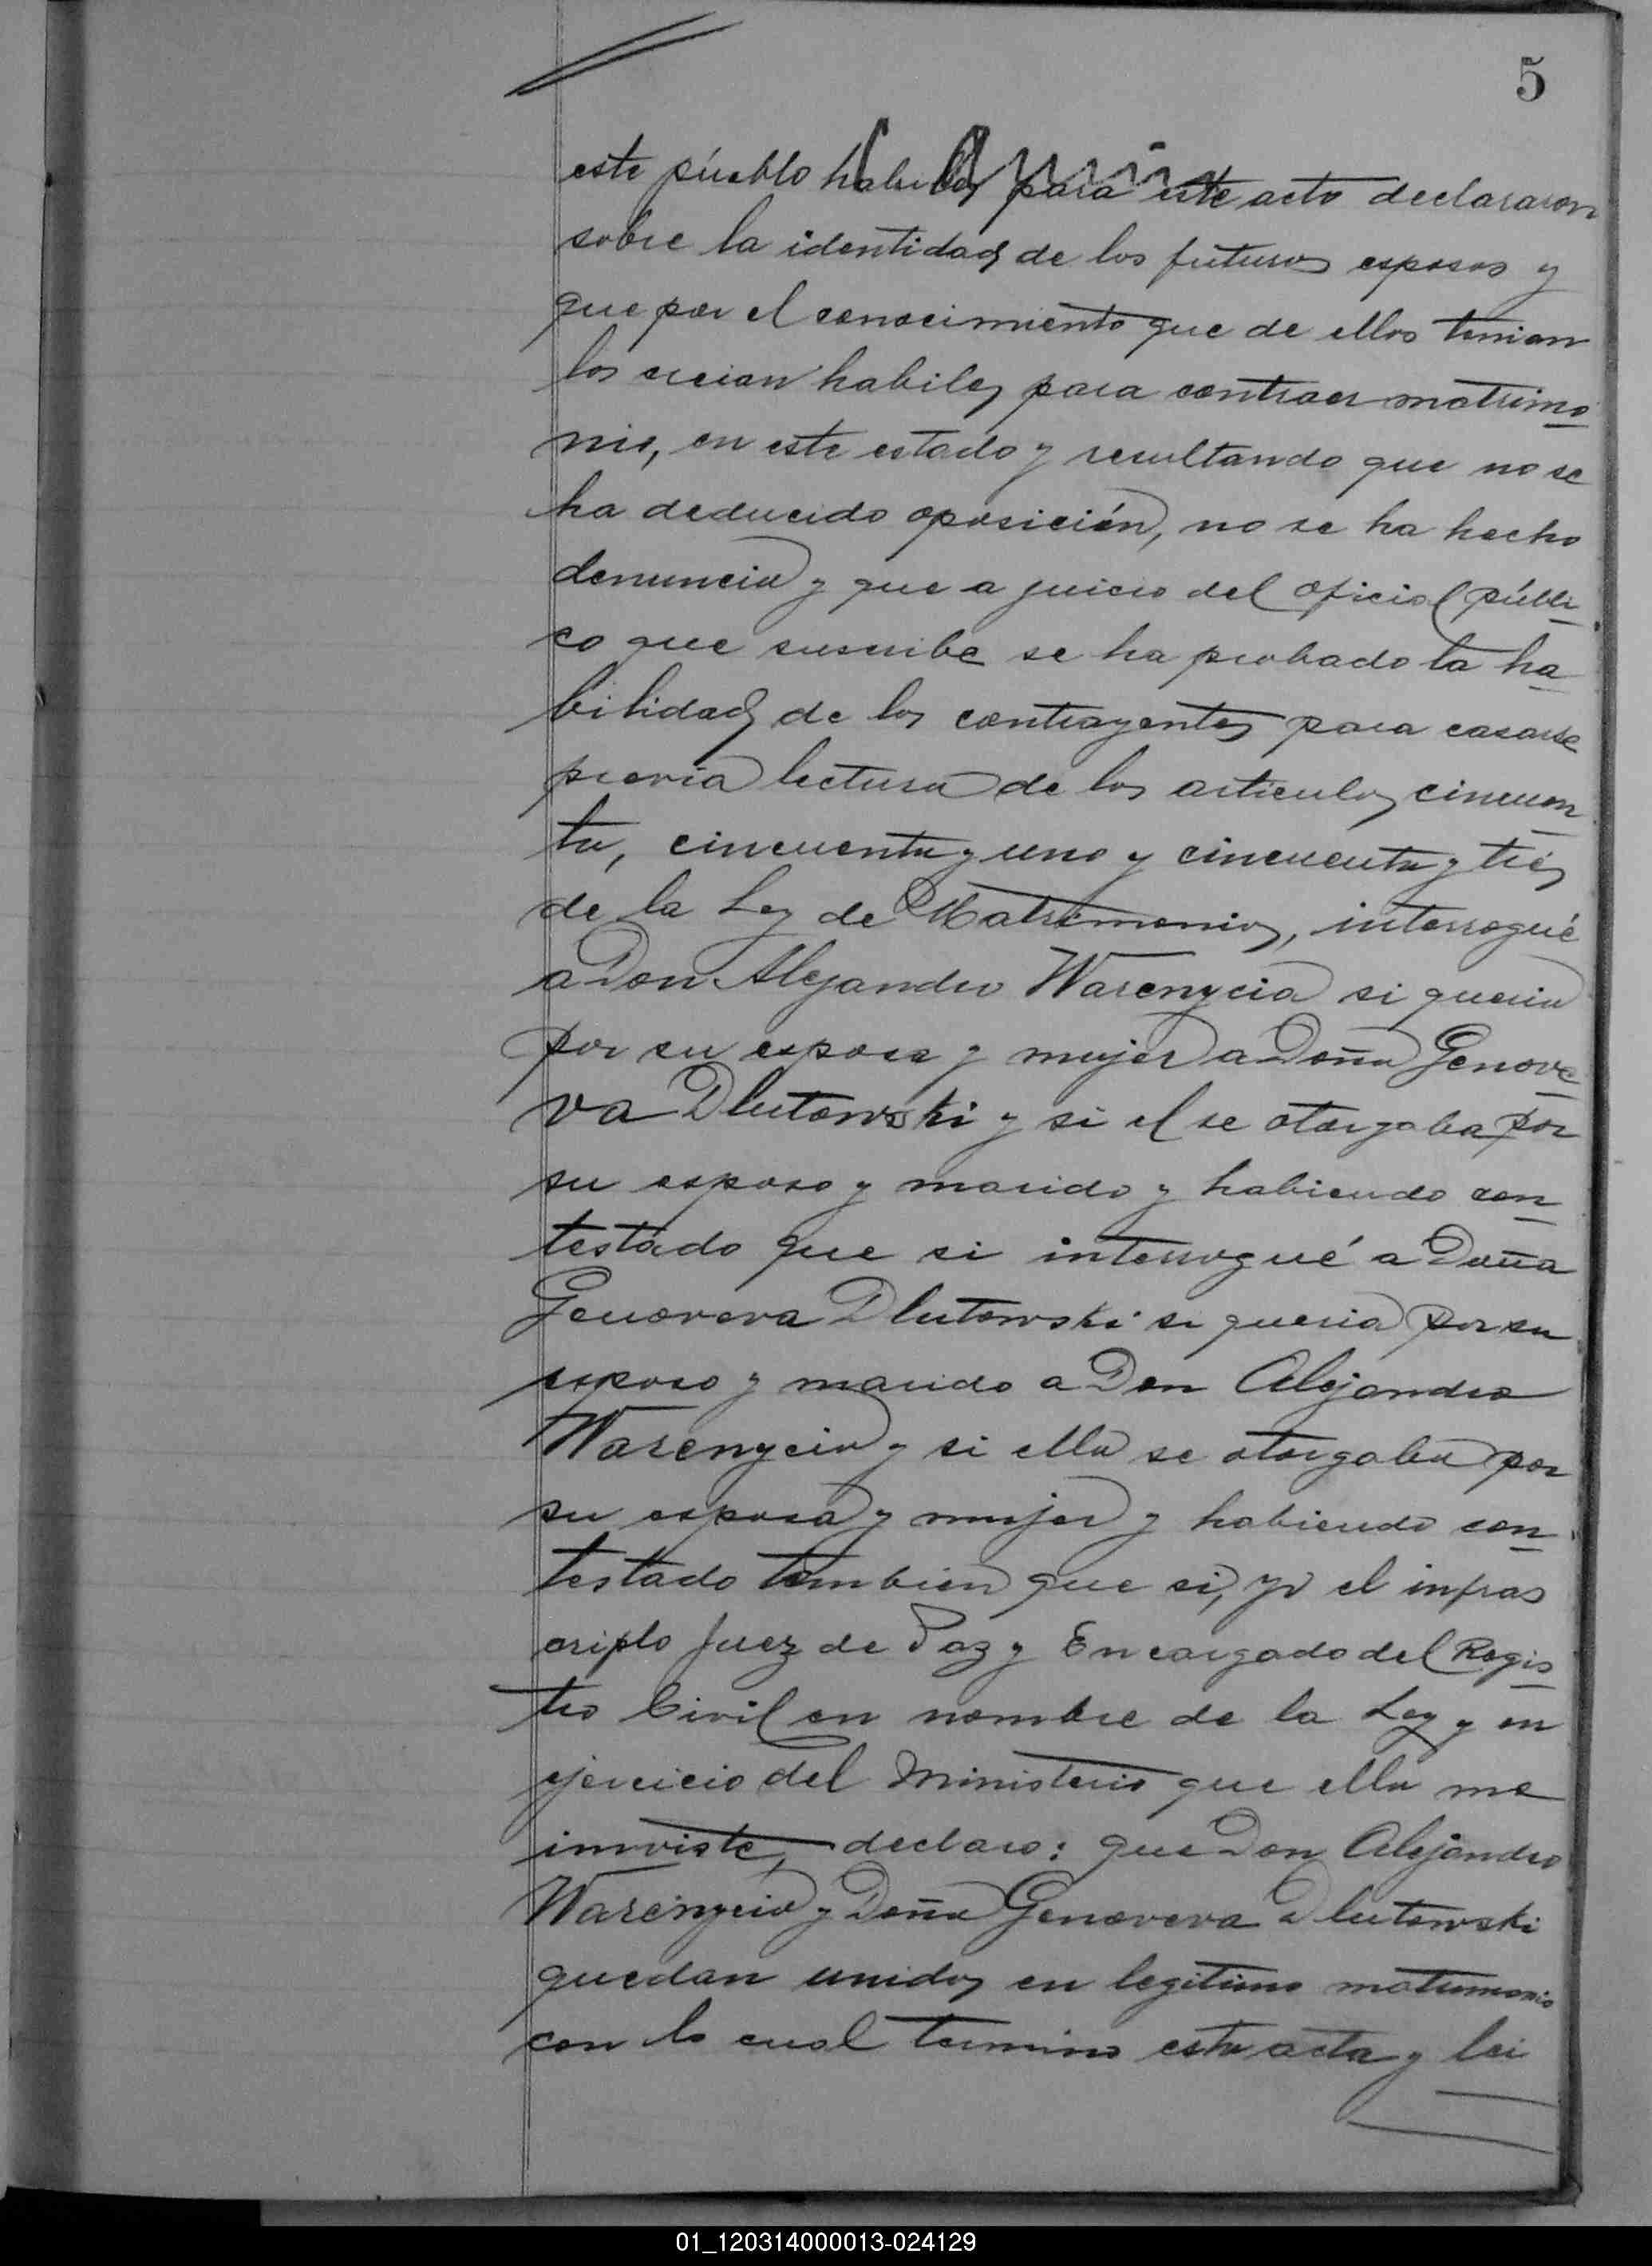 5
este pueblo habiles para este acto declararon
sobre la identidad de los futuros esposos y
que por el conocimiento que de ellos tenian
los creian habiles para contraer matrimo
nio, en este estado y resultando que no se
ha deducido oposición, no se ha hecho
denuncia y que a juicio del oficial públi
co que suscribe se ha probado la ha
bilidad de los contrayentes para casarse
previa lectura de los articulos cincuen
ta, cincuenta y uno y cincuenta y trés
de la Ley de Matrimonios, interrogué
a Don Alejandro Warenycia si queria
por su esposa y mujer a Doña Genove
va Dlutowski y si el se otorgaba por
su esposo y marido y habiendo con
testado que si interrogué a Doña
Genoveva Dlutowski si queria por su
esposo y marido a Don Alejandro
Warenycia y si ella se otorgaba por
su esposa y mujer y habiendo con
testado tambien que si, yo el infras
cripto Juez de Paz y Encargado del Regis
tro Civil en nombre de la Ley y en
ejercicio del Ministerio que ella me
inviste, declaro: que Don Alejandro
Warenycia y Doña Genoveva Dlutowski
quedan unidos en legitimo matrimonio
con lo cual termino esta acta y lei
01_120314000013-024129